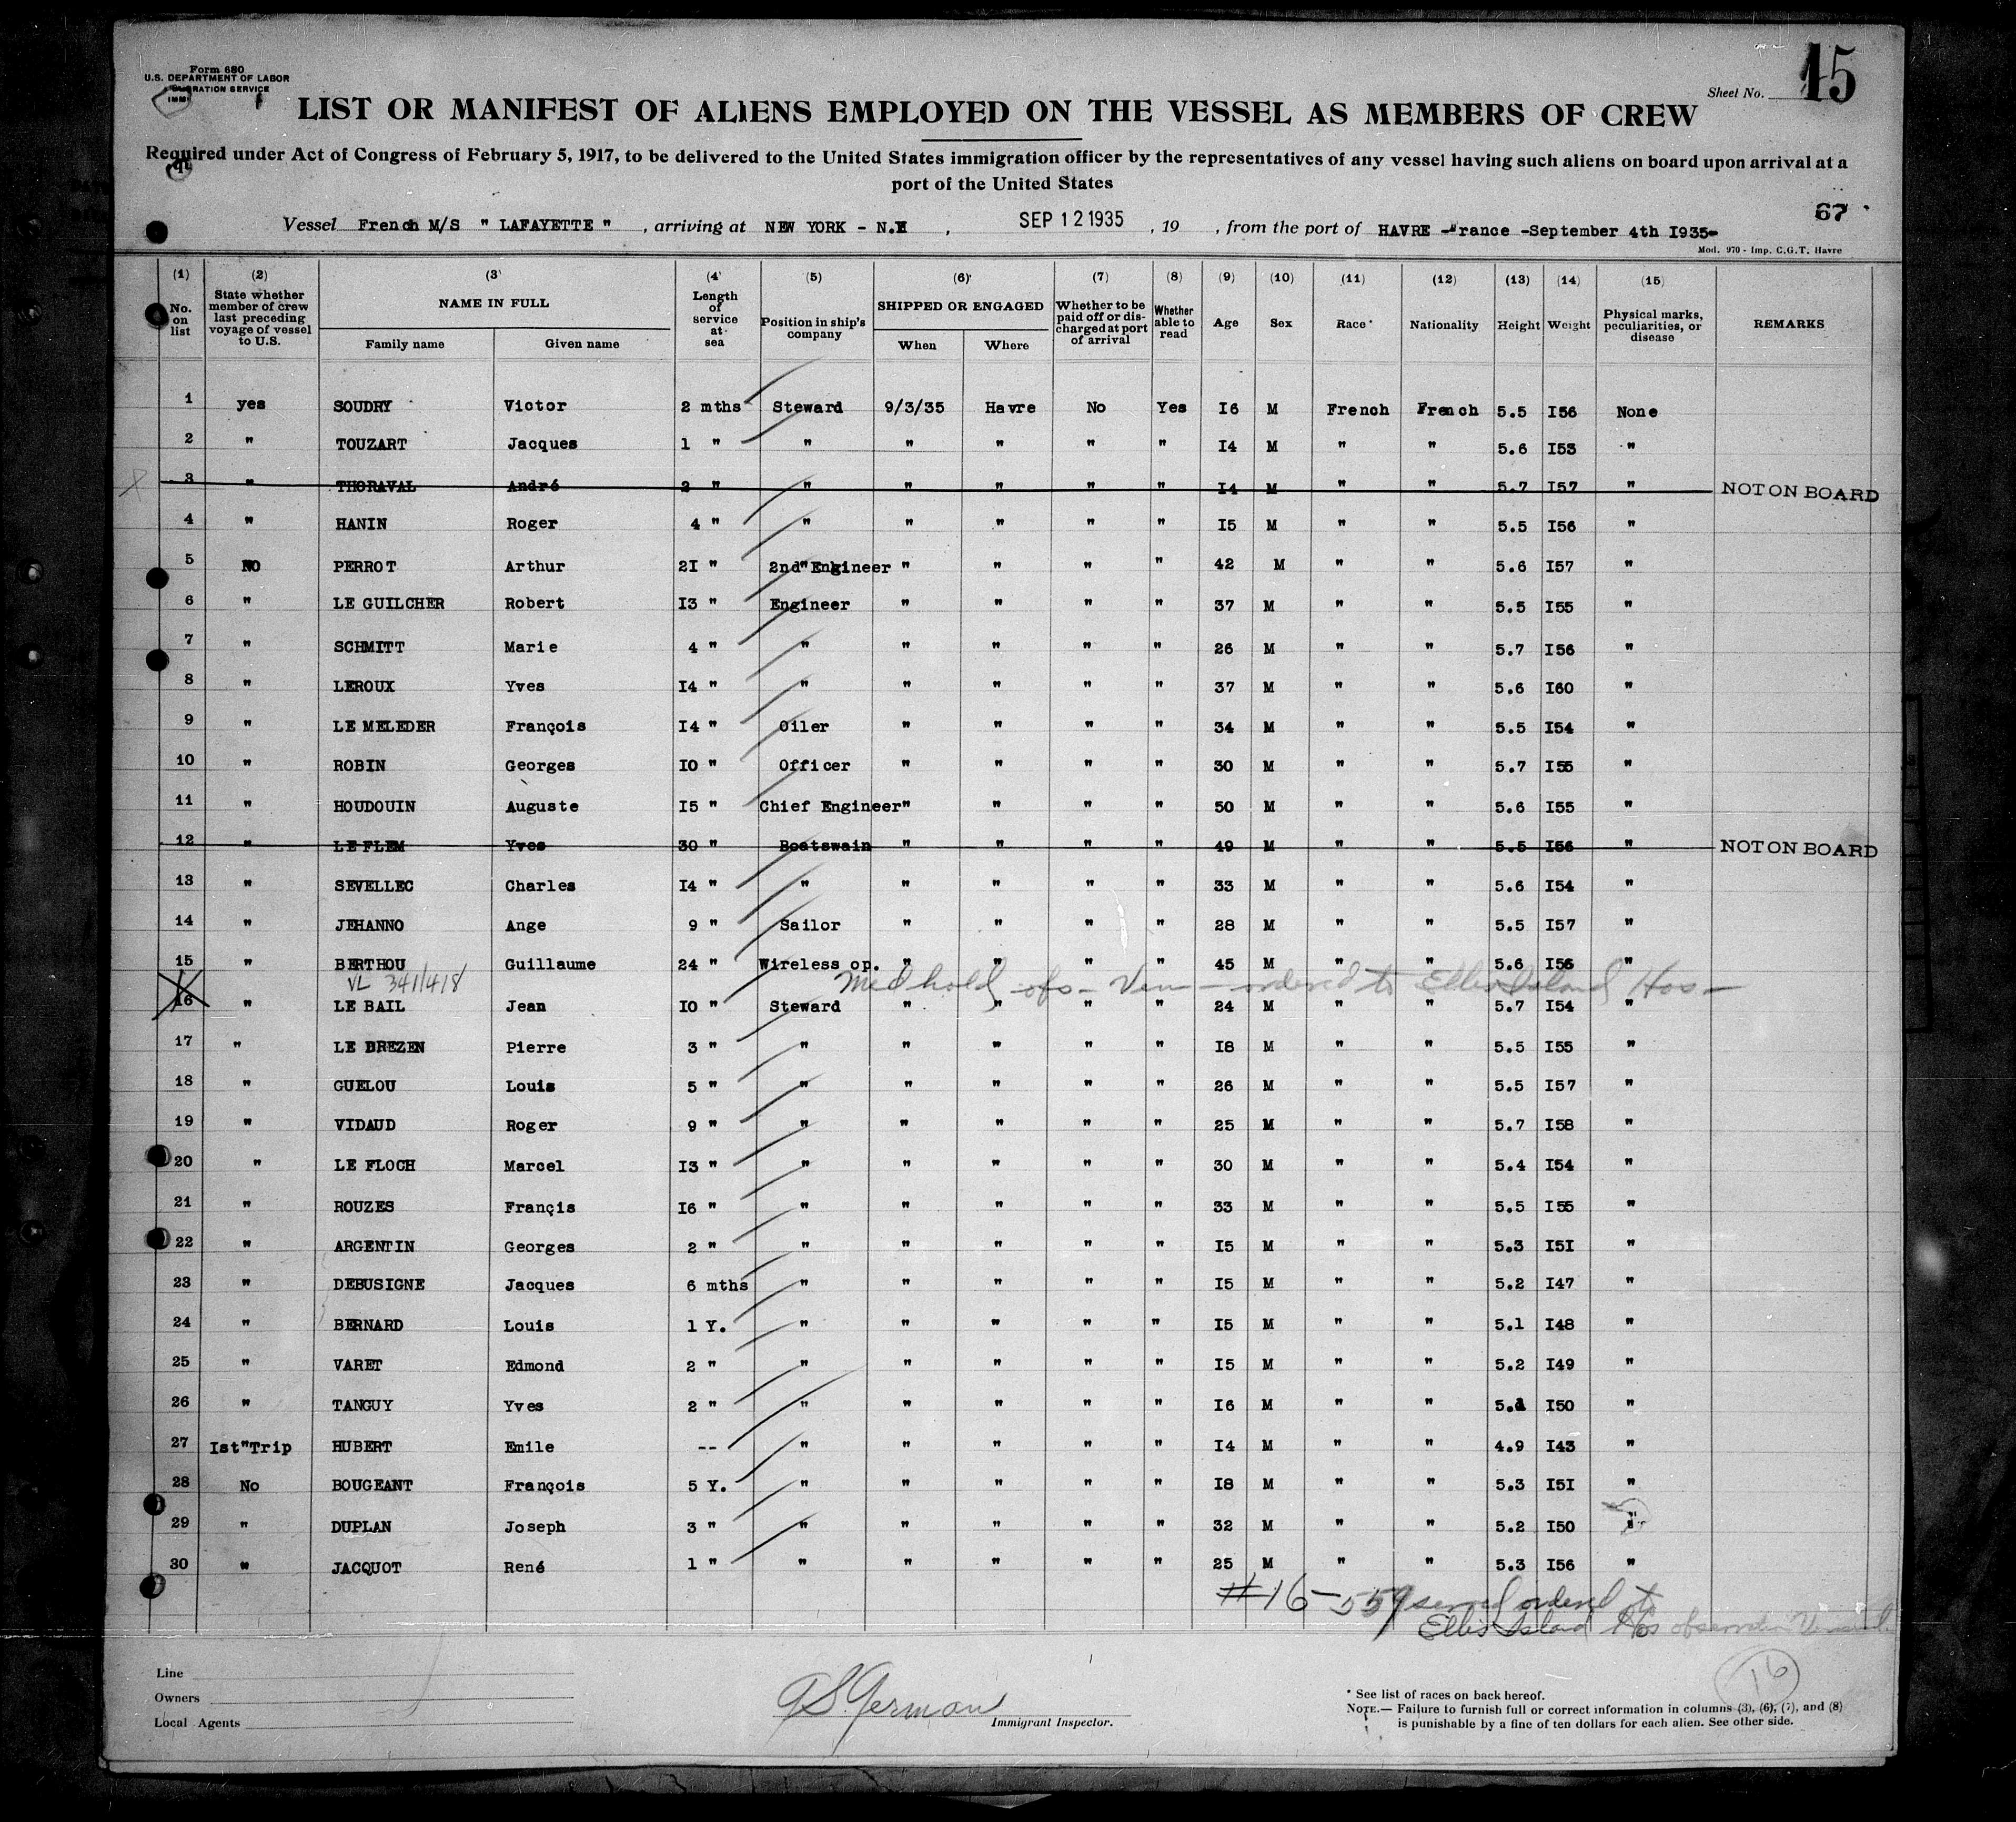 Form 680
U.S. DEPARTMENT OF LABOR
IMMIGRATION SERVICE
Sheet No. 15
LIST OR MANIFEST OF ALIENS EMPLOYED ON THE VESSEL AS MEMBERS OF CREW
Required under Act of Congress of February 5, 1917, to be delivered to the United States immigration officer by the representatives of any vessel having such aliens on board upon arrival at a
port of the United States
67
Vessel French M/S " LAFAYETTE " , arriving at NEW YORK - N.Y , SEP 12 1935 , 19 , from the port of HAVRE -France -September 4th I935-
Mod. 970 - Imp. C.G.T. Havre
(1) (2) (3) (4) (5) (6) (7) (8) (9) (10) (11) (12) (13) (14) (15)
No. on list State whether member of crew last preceding voyage of vessel to U.S. NAME IN FULL Family name Given name Length of service at sea Position in ship's company SHIPPED OR ENGAGED When Where Whether to be paid off or discharged at port of arrival Whether able to read Age Sex Race* Nationality Height Weight Physical marks, peculiarities, or disease REMARKS
1 yes SOUDRY Victor 2 mths Steward 9/3/35 Havre No Yes I6 M French French 5.5 I56 None
2 " TOUZART Jacques 1 " " " " " " I4 M " " 5.6 I53 "
3 " THORAVAL André 2 " " " " " " I4 M " " 5.7 I57 " NOT ON BOARD
4 " HANIN Roger 4 " " " " " " I5 M " " 5.5 I56 "
5 NO PERROT Arthur 2I " 2nd"Engineer " " " " 42 M " " 5.6 I57 "
6 " LE GUILCHER Robert I3 " Engineer " " " " 37 M " " 5.5 I55 "
7 " SCHMITT Marie 4 " " " " " " 26 M " " 5.7 I56 "
8 " LEROUX Yves I4 " " " " " " 37 M " " 5.6 I60 "
9 " LE MELEDER François I4 " Oiler " " " " 34 M " " 5.5 I54 "
10 " ROBIN Georges IO " Officer " " " " 30 M " " 5.7 I55 "
11 " HOUDOUIN Auguste I5 " Chief Engineer" " " " 50 M " " 5.6 I55 "
12 " LE FLEM Yves 30 " Boatswain " " " " 49 M " " 5.5 I56 " NOT ON BOARD
13 " SEVELLEC Charles I4 " " " " " " 33 M " " 5.6 I54 "
14 " JEHANNO Ange 9 " Sailor " " " " 28 M " " 5.5 I57 "
15 " BERTHOU Guillaume 24 " Wireless op. " " " " 45 M " " 5.6 I56 "
VL 341/418 Med hold obs - Ven - ordered to Ellis Island Hos -
16 " LE BAIL Jean IO " Steward " " " " 24 M " " 5.7 I54 "
17 " LE DREZEN Pierre 3 " " " " " " I8 M " " 5.5 I55 "
18 " GUELOU Louis 5 " " " " " " 26 M " " 5.5 I57 "
19 " VIDAUD Roger 9 " " " " " " 25 M " " 5.7 I58 "
20 " LE FLOCH Marcel I3 " " " " " " 30 M " " 5.4 I54 "
21 " ROUZES Françis I6 " " " " " " 33 M " " 5.5 I55 "
22 " ARGENTIN Georges 2 " " " " " " I5 M " " 5.3 I5I "
23 " DEBUSIGNE Jacques 6 mths " " " " " I5 M " " 5.2 I47 "
24 " BERNARD Louis 1 Y. " " " " " I5 M " " 5.1 I48 "
25 " VARET Edmond 2 " " " " " " I5 M " " 5.2 I49 "
26 " TANGUY Yves 2 " " " " " " I6 M " " I50 "
27 Ist"Trip HUBERT Emile -- " " " " " I4 M " " 4.9 I43 "
28 No BOUGEANT François 5 Y. " " " " " I8 M " " 5.3 I5I "
29 " DUPLAN Joseph 3 " " " " " " 32 M " " 5.2 I50 "
30 " JACQUOT René 1 " " " " " " 25 M " " 5.3 I56 "
#16 - 559 served ordered to
Ellis Island Hos
16
Line
Owners
Local Agents
G S German
Immigrant Inspector.
* See list of races on back hereof.
NOTE.— Failure to furnish full or correct information in columns (3), (6), (7), and (8)
is punishable by a fine of ten dollars for each alien. See other side.